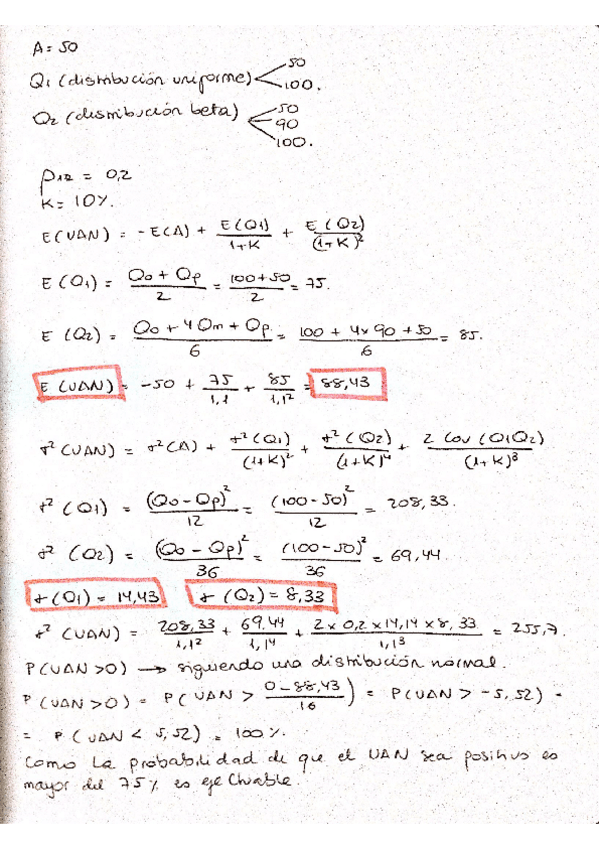 A = 50
Q1 (distribución uniforme) 50 100.
Q2 (distribución beta) 50 90 100.
ρ12 = 0,2
K = 10%.
E(VAN) = -E(A) + E(Q1)/(1+K) + E(Q2)/(1+K)²
E(Q1) = (Qo + Qp)/2 = (100+50)/2 = 75.
E(Q2) = (Qo + 4Qm + Qp)/6 = (100 + 4x90 + 50)/6 = 85.
E(VAN) = -50 + 75/1,1 + 85/1,1² = 88,43
σ²(VAN) = σ²(A) + σ²(Q1)/(1+K)² + σ²(Q2)/(1+K)⁴ + 2 Cov(Q1Q2)/(1+K)³
σ²(Q1) = (Qo-Qp)²/12 = (100-50)²/12 = 208,33.
σ²(Q2) = (Qo-Qp)²/36 = (100-50)²/36 = 69,44.
σ(Q1) = 14,43 σ(Q2) = 8,33
σ²(VAN) = 208,33/1,1² + 69,44/1,1⁴ + 2x0,2x14,14x8,33/1,1³ = 255,7.
P(VAN>0) → siguiendo una distribución normal.
P(VAN>0) = P(VAN > (0-88,43)/16) = P(VAN > -5,52) =
= P(VAN < 5,52) = 100%.
Como la probabilidad de que el VAN sea positivo es
mayor del 75% es efectuable.